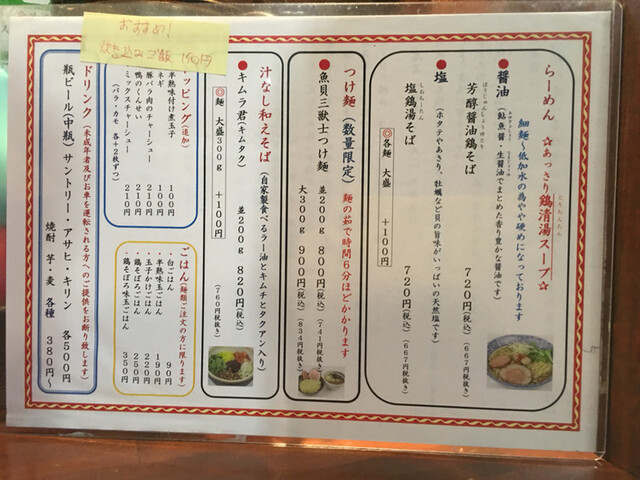 おすすめ!
炊き込みご飯 150円
らーめん ☆あっさり鶏清湯スープ☆
とりちんたん
細麺~低加水の為やや硬めになっております
醤油 (鮎魚醤・生醤油でまとめた香り豊かな醤油です)
ほうじゅんしょうゆとり
芳醇醤油鶏そば 720円(税込) (667円税抜き)
塩 (ホタテやあさり、牡蠣など貝の旨味がいっぱいの天然塩です)
しおとりたん
塩鶏湯そば 720円(税込) (667円税抜き)
◎各麺 大盛 +100円
つけ麺 (数量限定) 麺の茹で時間6分ほどかかります
魚貝三獣士つけ麺 並200g 800円(税込) (741円税抜き)
大300g 900円(税込) (834円税抜き)
汁なし和えそば (自家製食べるラー油とキムチとタクアン入り)
キムラ君(キムタク) 並200g 820円(税込)
(760円税抜き)
◎麺 大盛300g +100円
ッピング(追加)
半熟味付け煮玉子 100円
ネギ 100円
豚バラ肉のチャーシュー 210円
鴨のくんせい 210円
ミックスチャーシュー 210円
(バラ・カモ 各+2枚ずつ)
ごはん(麺類ご注文の方に限ります)
・白ごはん 90円
・半熟味玉ごはん 190円
・玉子かけごはん 220円
・鶏そぼろごはん 250円
・鶏そぼろ味玉ごはん 350円
ドリンク (未成年者及びお車を運転される方へのご提供をお断り致します)
瓶ビール(中瓶) サントリー・アサヒ・キリン 各500円
焼酎 芋・麦 各種 380円~